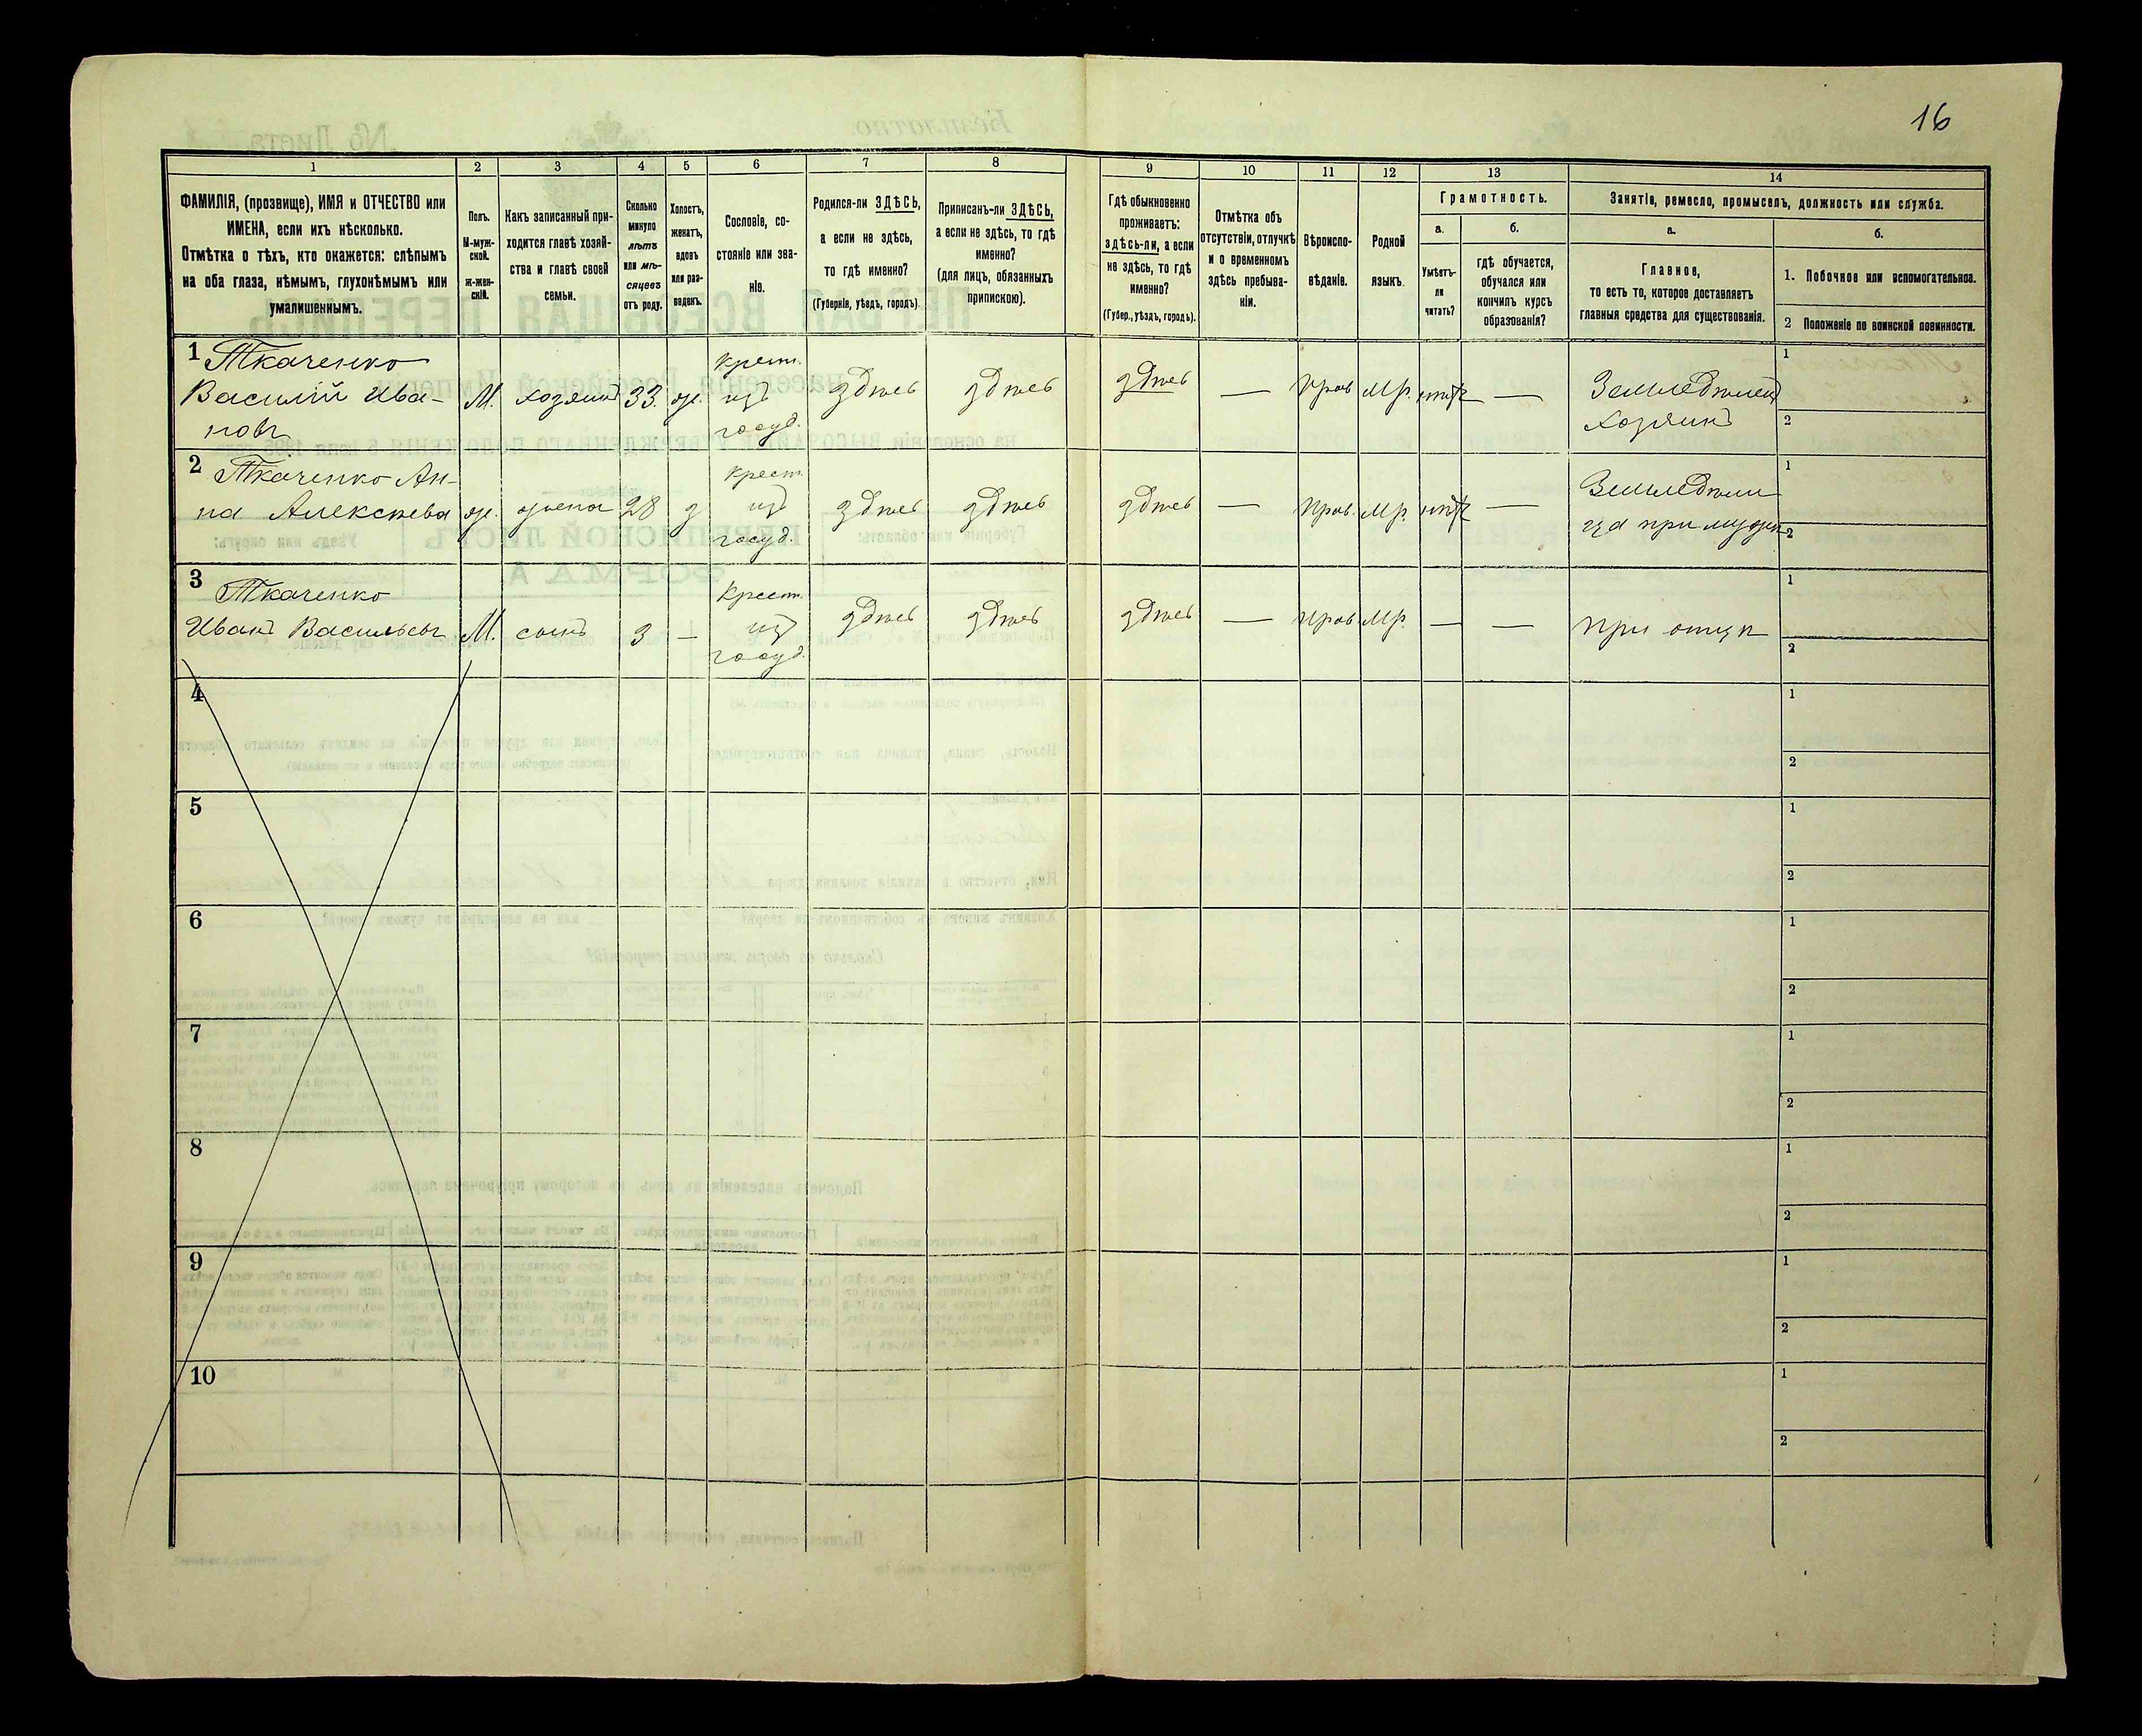 16
1
2
3
4
5
6
7
8
9
10
11
12
13
14
ФАМИЛІЯ, (прозвище), ИМЯ и ОТЧЕСТВО или
ИМЕНА, если ихъ нѣсколько.
Отмѣтка о тѣхъ, кто окажется: слѣпымъ
на оба глаза, нѣмымъ, глухонѣмымъ или
умалишеннымъ.
Полъ.
М-муж-
ской.
ж-жен-
скій.
Какъ записанный при-
ходится главѣ хозяй-
ства и главѣ своей
семьи.
Сколько
минуло
лѣтъ
или мѣ-
сяцевъ
отъ роду.
Холостъ,
женатъ,
вдовъ
или раз-
веденъ.
Сословіе, со-
стояніе или зва-
ніе.
Родился-ли ЗДѢСЬ,
а если не здѣсь,
то гдѣ именно?
(Губернія, уѣздъ, городъ).
Приписанъ-ли ЗДѢСЬ,
а если не здѣсь, то гдѣ
именно?
(для лицъ, обязанныхъ
припискою).
Гдѣ обыкновенно
проживаетъ:
здѣсь-ли, а если
не здѣсь, то гдѣ
именно?
(Губер., уѣздъ, городъ).
Отмѣтка объ
отсутствіи, отлучкѣ
и о временномъ
здѣсь пребыва-
ніи.
Вѣроиспо-
вѣданіе.
Родной
языкъ.
Грамотность.
а.
Умѣетъ-
ли
читать?
б.
гдѣ обучается,
обучался или
кончилъ курсъ
образованія?
Занятіе, ремесло, промыселъ, должность или служба.
а.
Главное,
то есть то, которое доставляетъ
главныя средства для существованія.
б.
1. Побочное или вспомогательное.
2 Положеніе по воинской повинности.
1 Ткаченко
Василій Ива-
новъ
М.
хозяинъ
33.
ж.
крест.
изъ
госуд.
здѣсь
здѣсь
здѣсь
—
прав
мр.
нѣтъ
—
Земледѣлецъ
хозяинъ
1
2
2 Ткаченко Ан-
на Алексѣева
ж.
жена
28
з
крест.
изъ
госуд.
здѣсь
здѣсь
здѣсь
—
прав.
мр.
нѣтъ
—
Земледѣли
ца при мужѣ
1
2
3 Ткаченко
Иванъ Васильевъ
М.
сынъ
3
—
крест.
изъ
госуд.
здѣсь
здѣсь
здѣсь
—
прав
мр.
—
—
при отцѣ
1
2
4
1
2
5
1
2
6
1
2
7
1
2
8
1
2
9
1
2
10
1
2